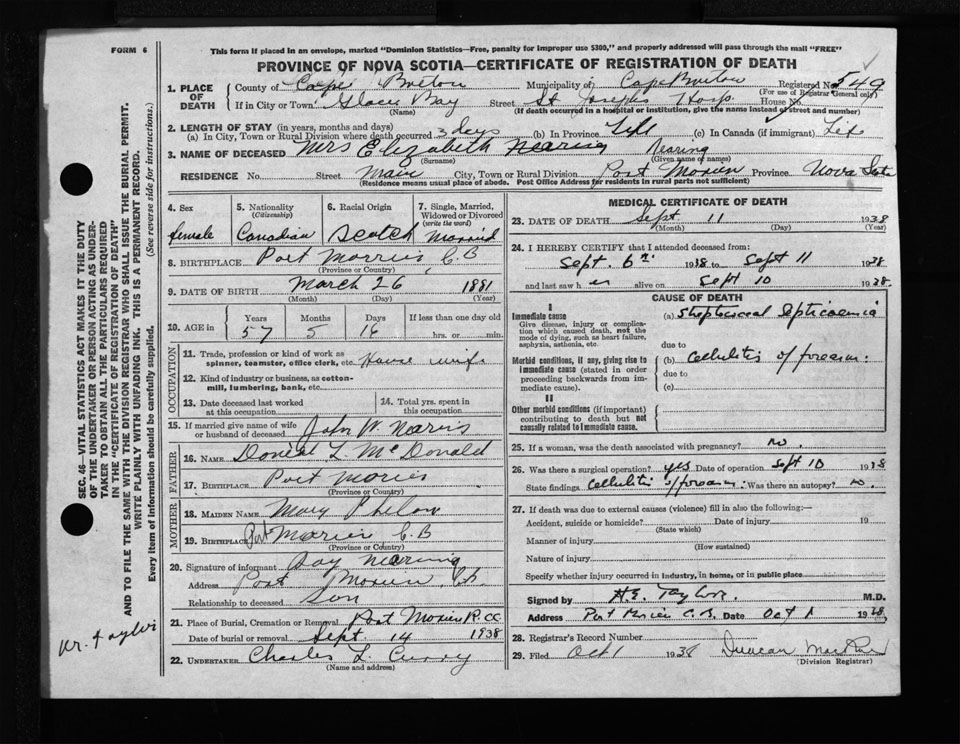 FORM 6
This form if placed in an envelope, marked "Dominion Statistics—Free, penalty for improper use $300," and properly addressed will pass through the mail "FREE"
PROVINCE OF NOVA SCOTIA—CERTIFICATE OF REGISTRATION OF DEATH
1. PLACE OF DEATH
County of Cape Breton Municipality of Cape Breton Registered No. 549
(For use of Registrar General only)
If in City or Town Glace Bay Street St Josephs Hosp House No.
(Name) (If death occurred in a hospital or institution, give the name instead of street and number)
2. LENGTH OF STAY (in years, months and days)
(a) In City, Town or Rural Division where death occurred 3 days (b) In Province Life (c) In Canada (if immigrant) Life
3. NAME OF DECEASED Mrs Elizabeth Nearing Nearing
(Surname) (Given name or names)
RESIDENCE No. Street Main City, Town or Rural Division Port Morien Province Nova Sct
(Residence means usual place of abode. Post Office Address for residents in rural parts not sufficient)
4. Sex female
5. Nationality (Citizenship) Canadian
6. Racial Origin Scotch
7. Single, Married, Widowed or Divorced (write the word) Married
8. BIRTHPLACE Port Morien, C.B
(Province or Country)
9. DATE OF BIRTH March 26 1881
(Month) (Day) (Year)
10. AGE in Years Months Days If less than one day old
57 5 16 hrs. or min.
OCCUPATION
11. Trade, profession or kind of work as spinner, teamster, office clerk, etc. House wife
12. Kind of industry or business, as cotton-mill, lumbering, bank, etc.
13. Date deceased last worked at this occupation
14. Total yrs. spent in this occupation
15. If married give name of wife or husband of deceased John W
FATHER
16. NAME Daniel L McDonald
17. BIRTHPLACE Port Morien
(Province or Country)
MOTHER
18. MAIDEN NAME Mary Phelan
19. BIRTHPLACE Port Morien C.B
(Province or Country)
20. Signature of informant Ray Nearing
Address Port Morien C.B.
Relationship to deceased Son
21. Place of Burial, Cremation or Removal Port Morien R.CC
Date of burial or removal Sept. 14 1938
22. UNDERTAKER Charles L Curry
MEDICAL CERTIFICATE OF DEATH
23. DATE OF DEATH Sept 11 1938
(Month) (Day) (Year)
24. I HEREBY CERTIFY that I attended deceased from:
Sept. 6th 1938 to Sept 11 1938
and last saw her alive on Sept 10 1938
CAUSE OF DEATH
I
Immediate cause
Give disease, injury or complication which caused death, not the mode of dying, such as heart failure, asphyxia, asthenia, etc.
(a) Streptococcal Septicaemia
due to
Morbid conditions, if any, giving rise to immediate cause (stated in order proceeding backwards from immediate cause).
(b) Cellulitis of forearm.
due to
(c)
II
Other morbid conditions (if important) contributing to death but not causally related to immediate cause.
25. If a woman, was the death associated with pregnancy? no.
26. Was there a surgical operation? yes Date of operation Sept 10 1938
State findings Cellulitis of forearm. Was there an autopsy? no.
27. If death was due to external causes (violence) fill in also the following:—
Accident, suicide or homicide? Date of injury 19
(State which)
Manner of injury
(How sustained)
Nature of injury
Specify whether injury occurred in industry, in home, or in public place
Signed by H.E. Taylor M.D.
Address Port Morien C.B. Date Oct 1 1938
28. Registrar's Record Number
29. Filed Oct 1 1938 Duncan
(Division Registrar)
SEC. 46—VITAL STATISTICS ACT MAKES IT THE DUTY
OF THE UNDERTAKER OR PERSON ACTING AS UNDER-
TAKER TO OBTAIN ALL THE PARTICULARS REQUIRED
IN THE "CERTIFICATE OF REGISTRATION OF DEATH"
AND TO FILE THE SAME WITH THE DIVISION REGISTRAR WHO SHALL ISSUE THE BURIAL PERMIT.
WRITE PLAINLY WITH UNFADING INK. THIS IS A PERMANENT RECORD.
Every item of information should be carefully supplied. (See reverse side for instructions.)
Dr. Taylor